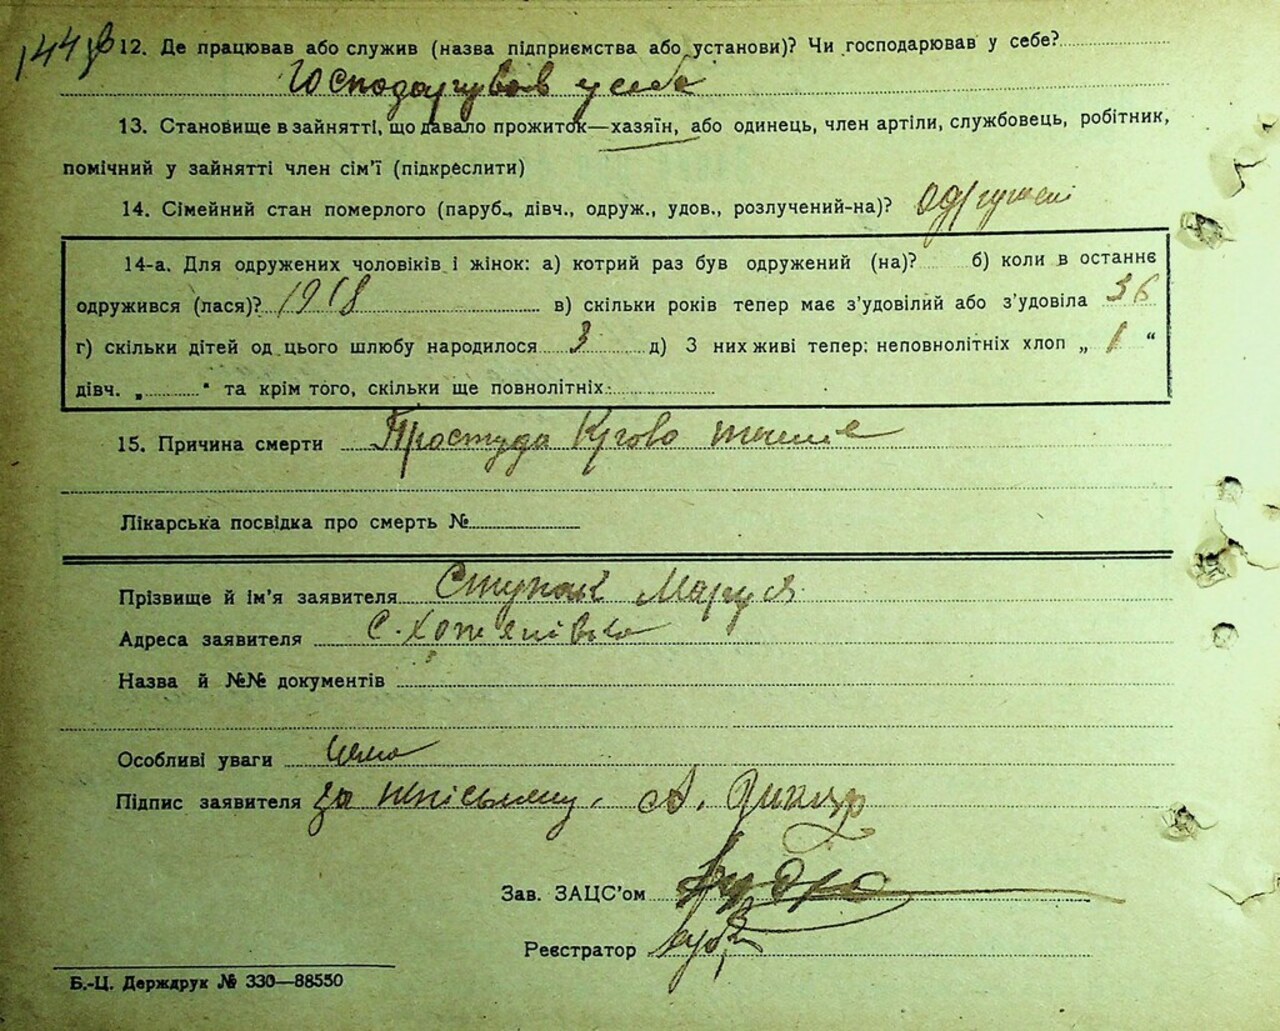 144 зв
12. Де працював або служив (назва підприємства або установи)? Чи господарював у себе?
Господарував у себе
13. Становище в зайнятті, що давало прожиток—хазяїн, або одинець, член артіли, службовець, робітник,
помічний у зайнятті член сім'ї (підкреслити)
14. Сімейний стан померлого (паруб., дівч., одруж., удов., розлучений-на)? одружені
14-а. Для одружених чоловіків і жінок: а) котрий раз був одружений (на)? б) коли в останнє
одружився (лася)? 1918 в) скільки років тепер має з'удовілий або з'удовіла 36
г) скільки дітей од цього шлюбу народилося 3 д) З них живі тепер: неповнолітніх хлоп „ 1 “
дівч. „ “ та крім того, скільки ще повнолітніх:
15. Причина смерти Простуда Крово течение
Лікарська посвідка про смерть №
Прізвище й ім'я заявителя Ступак Маруся
Адреса заявителя С. Хоженівка
Назва й №№ документів
Особливі уваги
Підпис заявителя за неписьмену. А.
Зав. ЗАЦС'ом
Реєстратор
Б.-Ц. Держдрук № 330—88550